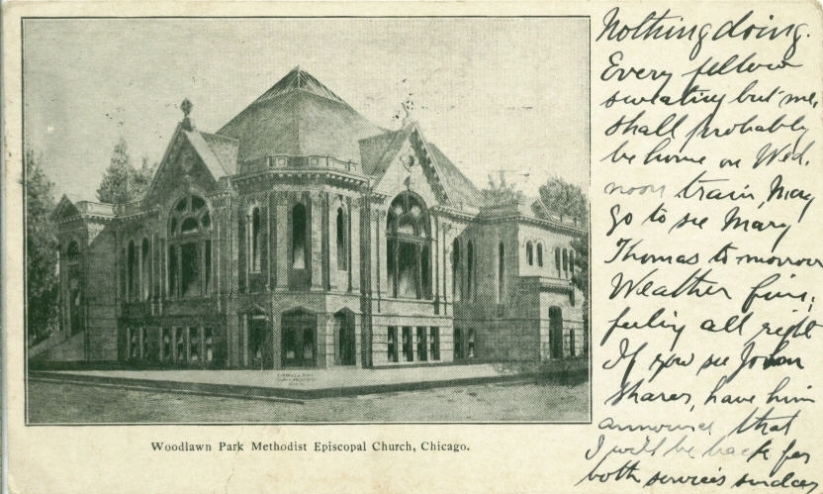 Nothing doing.
Every fellow
sweating but me,
shall probably
be home on Wed.
noon train, May
go to see Mary
Thomas tomorrow
Weather fine,
feeling all right
If you see John
Shares, have him
announce that
I will be back for
both services sunday
Woodlawn Park Methodist Episcopal Church, Chicago.